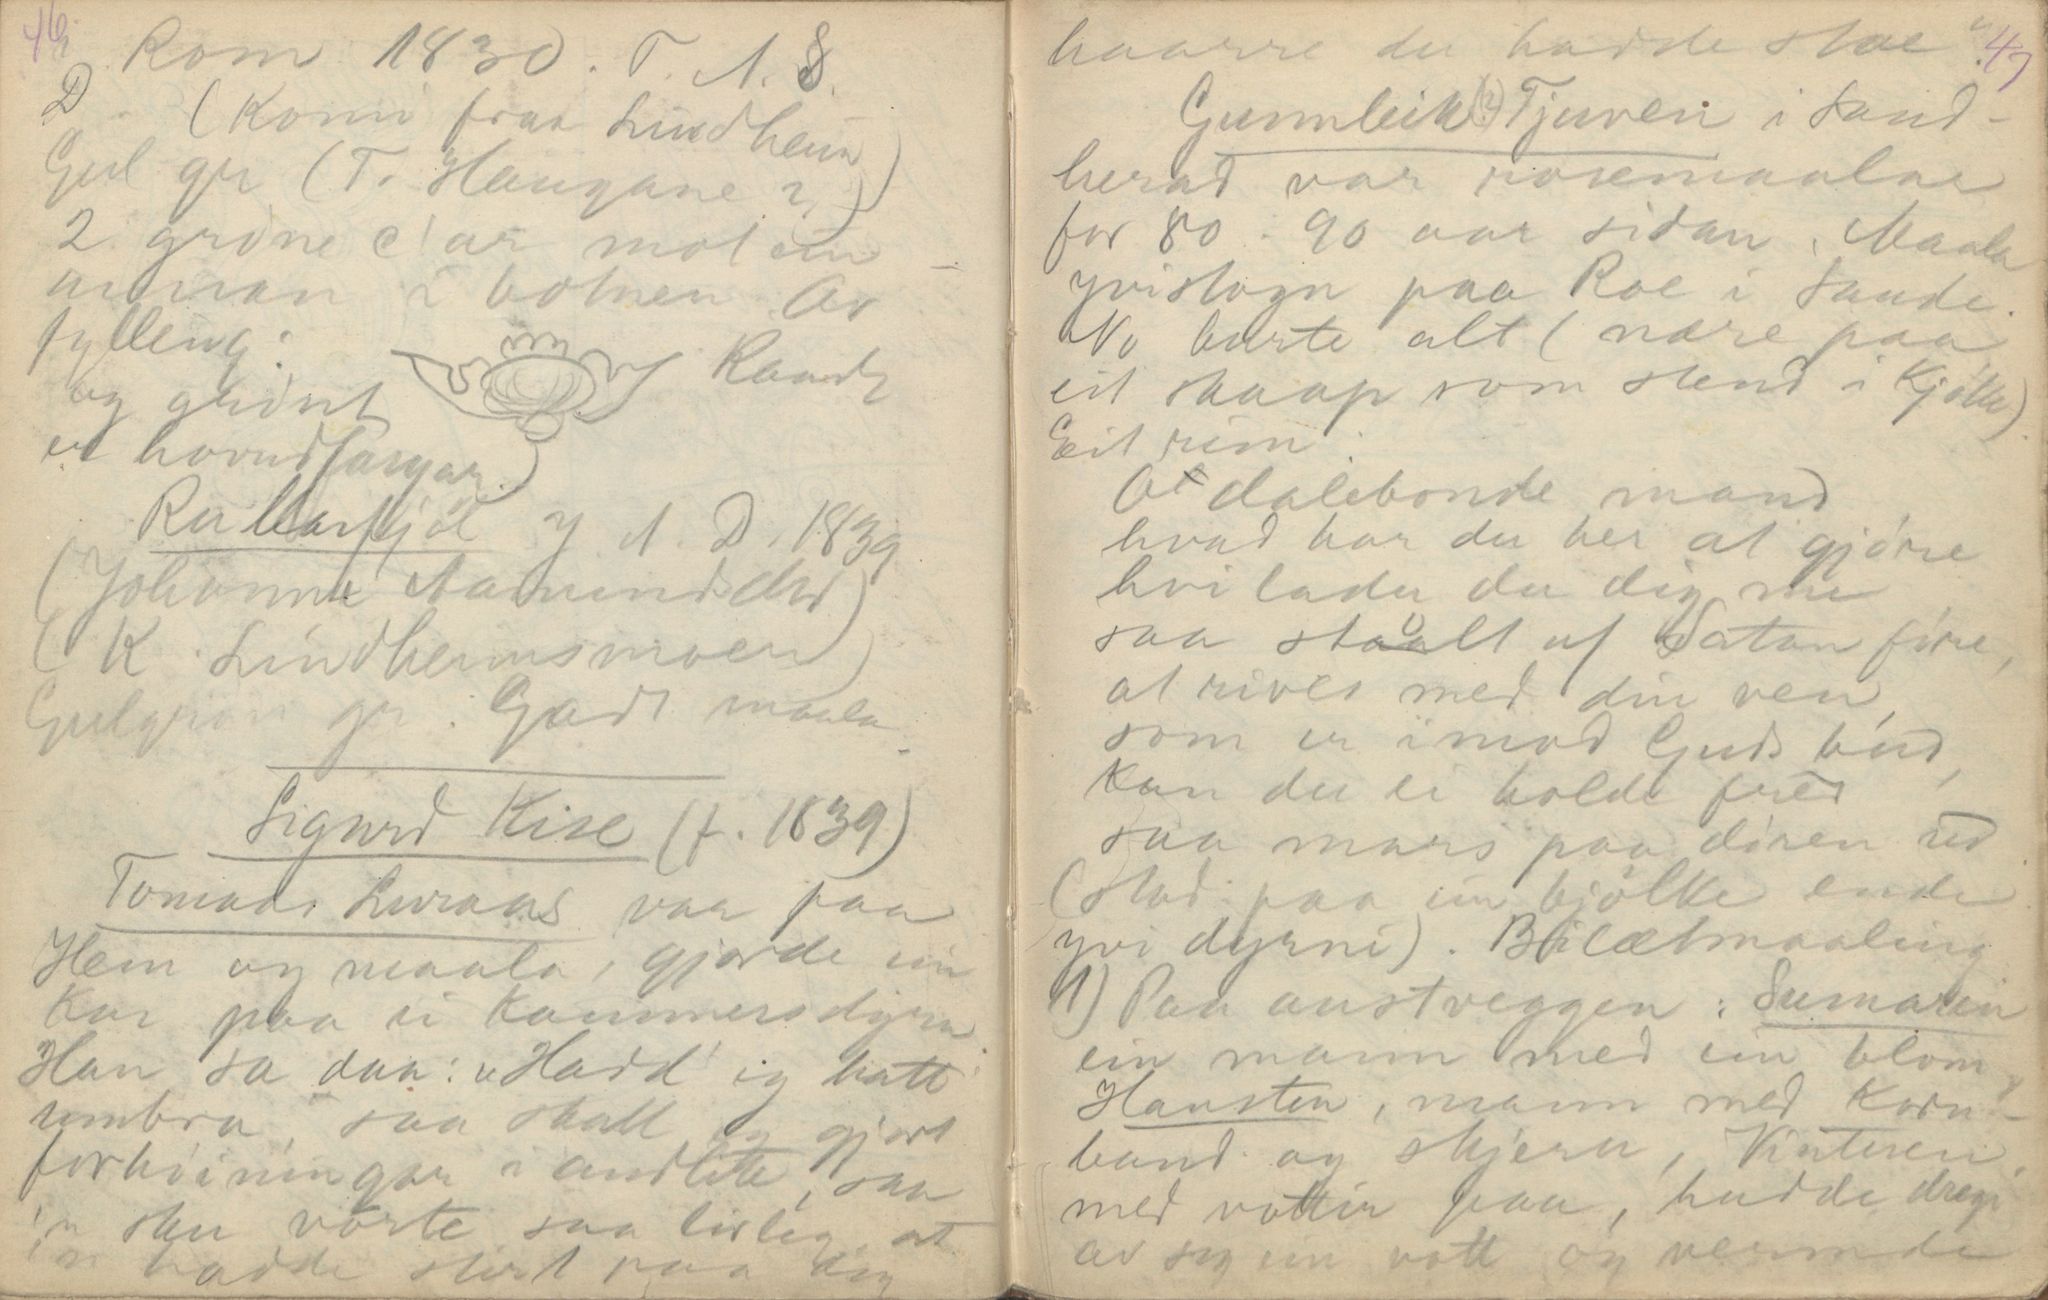 46
Rom 1830. T. A. S.
D. (Komi fraa Lindheim)
Gul gr (T. Haugane?)
2 gröne c'ar mot ein
annan i botnen Av
fylling: Raudt
og grönt
er hovudfargar.)
Rullarfjöl y A. D. 1839
(Johanne Aamundsdtr)
(K. Lindheimsmoen)
Gulgrön gr. Godt maala.
Sigurd Kise (f. 1839)
Tomads Luraas var paa
Hem og maala, gjorde ein
Kar paa ei kammersdyrn.
Han sa daa: "Hadd' eg hatt
umbra, saa skull eg gjort
forhöiningar i andlite, saa
'n sku vorte saa livleg at
'n hadde stirt paa deg
47
kaarre du hadde stae"
Gunnleik(?) Tjuven i Sand-
herad var rosemaalar
for 80 - 90 aar sidan. Maala
yvistogn paa Roe i Saude.
No burte alt (nære paa
eit skaap som stend i Kjøkk)
Eit rim:
Oe dalebonde mand
hvad har du her at gjöre
hvi lader du dig nu
saa stolt af Satan före,
at rives med din ven,
som er imod Guds bud,
Kan du ei holde fred
saa mars paa dören ud
(stod paa ein bjölke ende
yvi dyrni). Bilætmaaling
1) Paa austveggen: Sumaren
ein mann med ein blom,
Hausten, mann med Korn-
band og skjeru, Vinteren,
med vottir paa, hadde drege
av seg ein vott og vermde